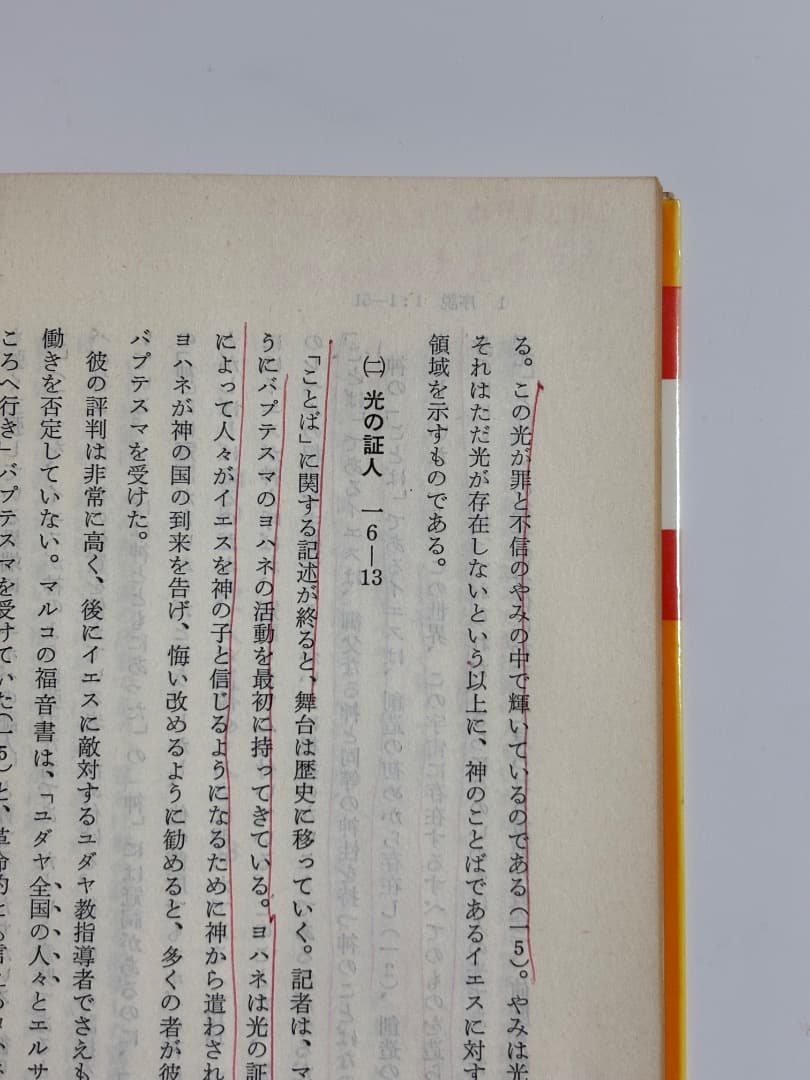 る。この光が罪と不信のやみの中で輝いているのである(一5)。やみは光
それはただ光が存在しないという以上に、神のことばであるイエスに対す
領域を示すものである。
㈡ 光の証人 一6—13
「ことば」に関する記述が終ると、舞台は歴史に移っていく。記者は、マ
うにバプテスマのヨハネの活動を最初に持ってきている。ヨハネは光の証
によって人々がイエスを神の子と信じるようになるために神から遣わされ
ヨハネが神の国の到来を告げ、悔い改めるように勧めると、多くの者が彼
バプテスマを受けた。
彼の評判は非常に高く、後にイエスに敵対するユダヤ教指導者でさえも
働きを否定していない。マルコの福音書は、「ユダヤ全国の人々とエルサ
ころへ行き」バプテスマを受けていた(一5)と、革命的とも言